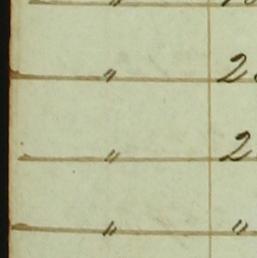 〃
〃 2
〃 2
〃 〃